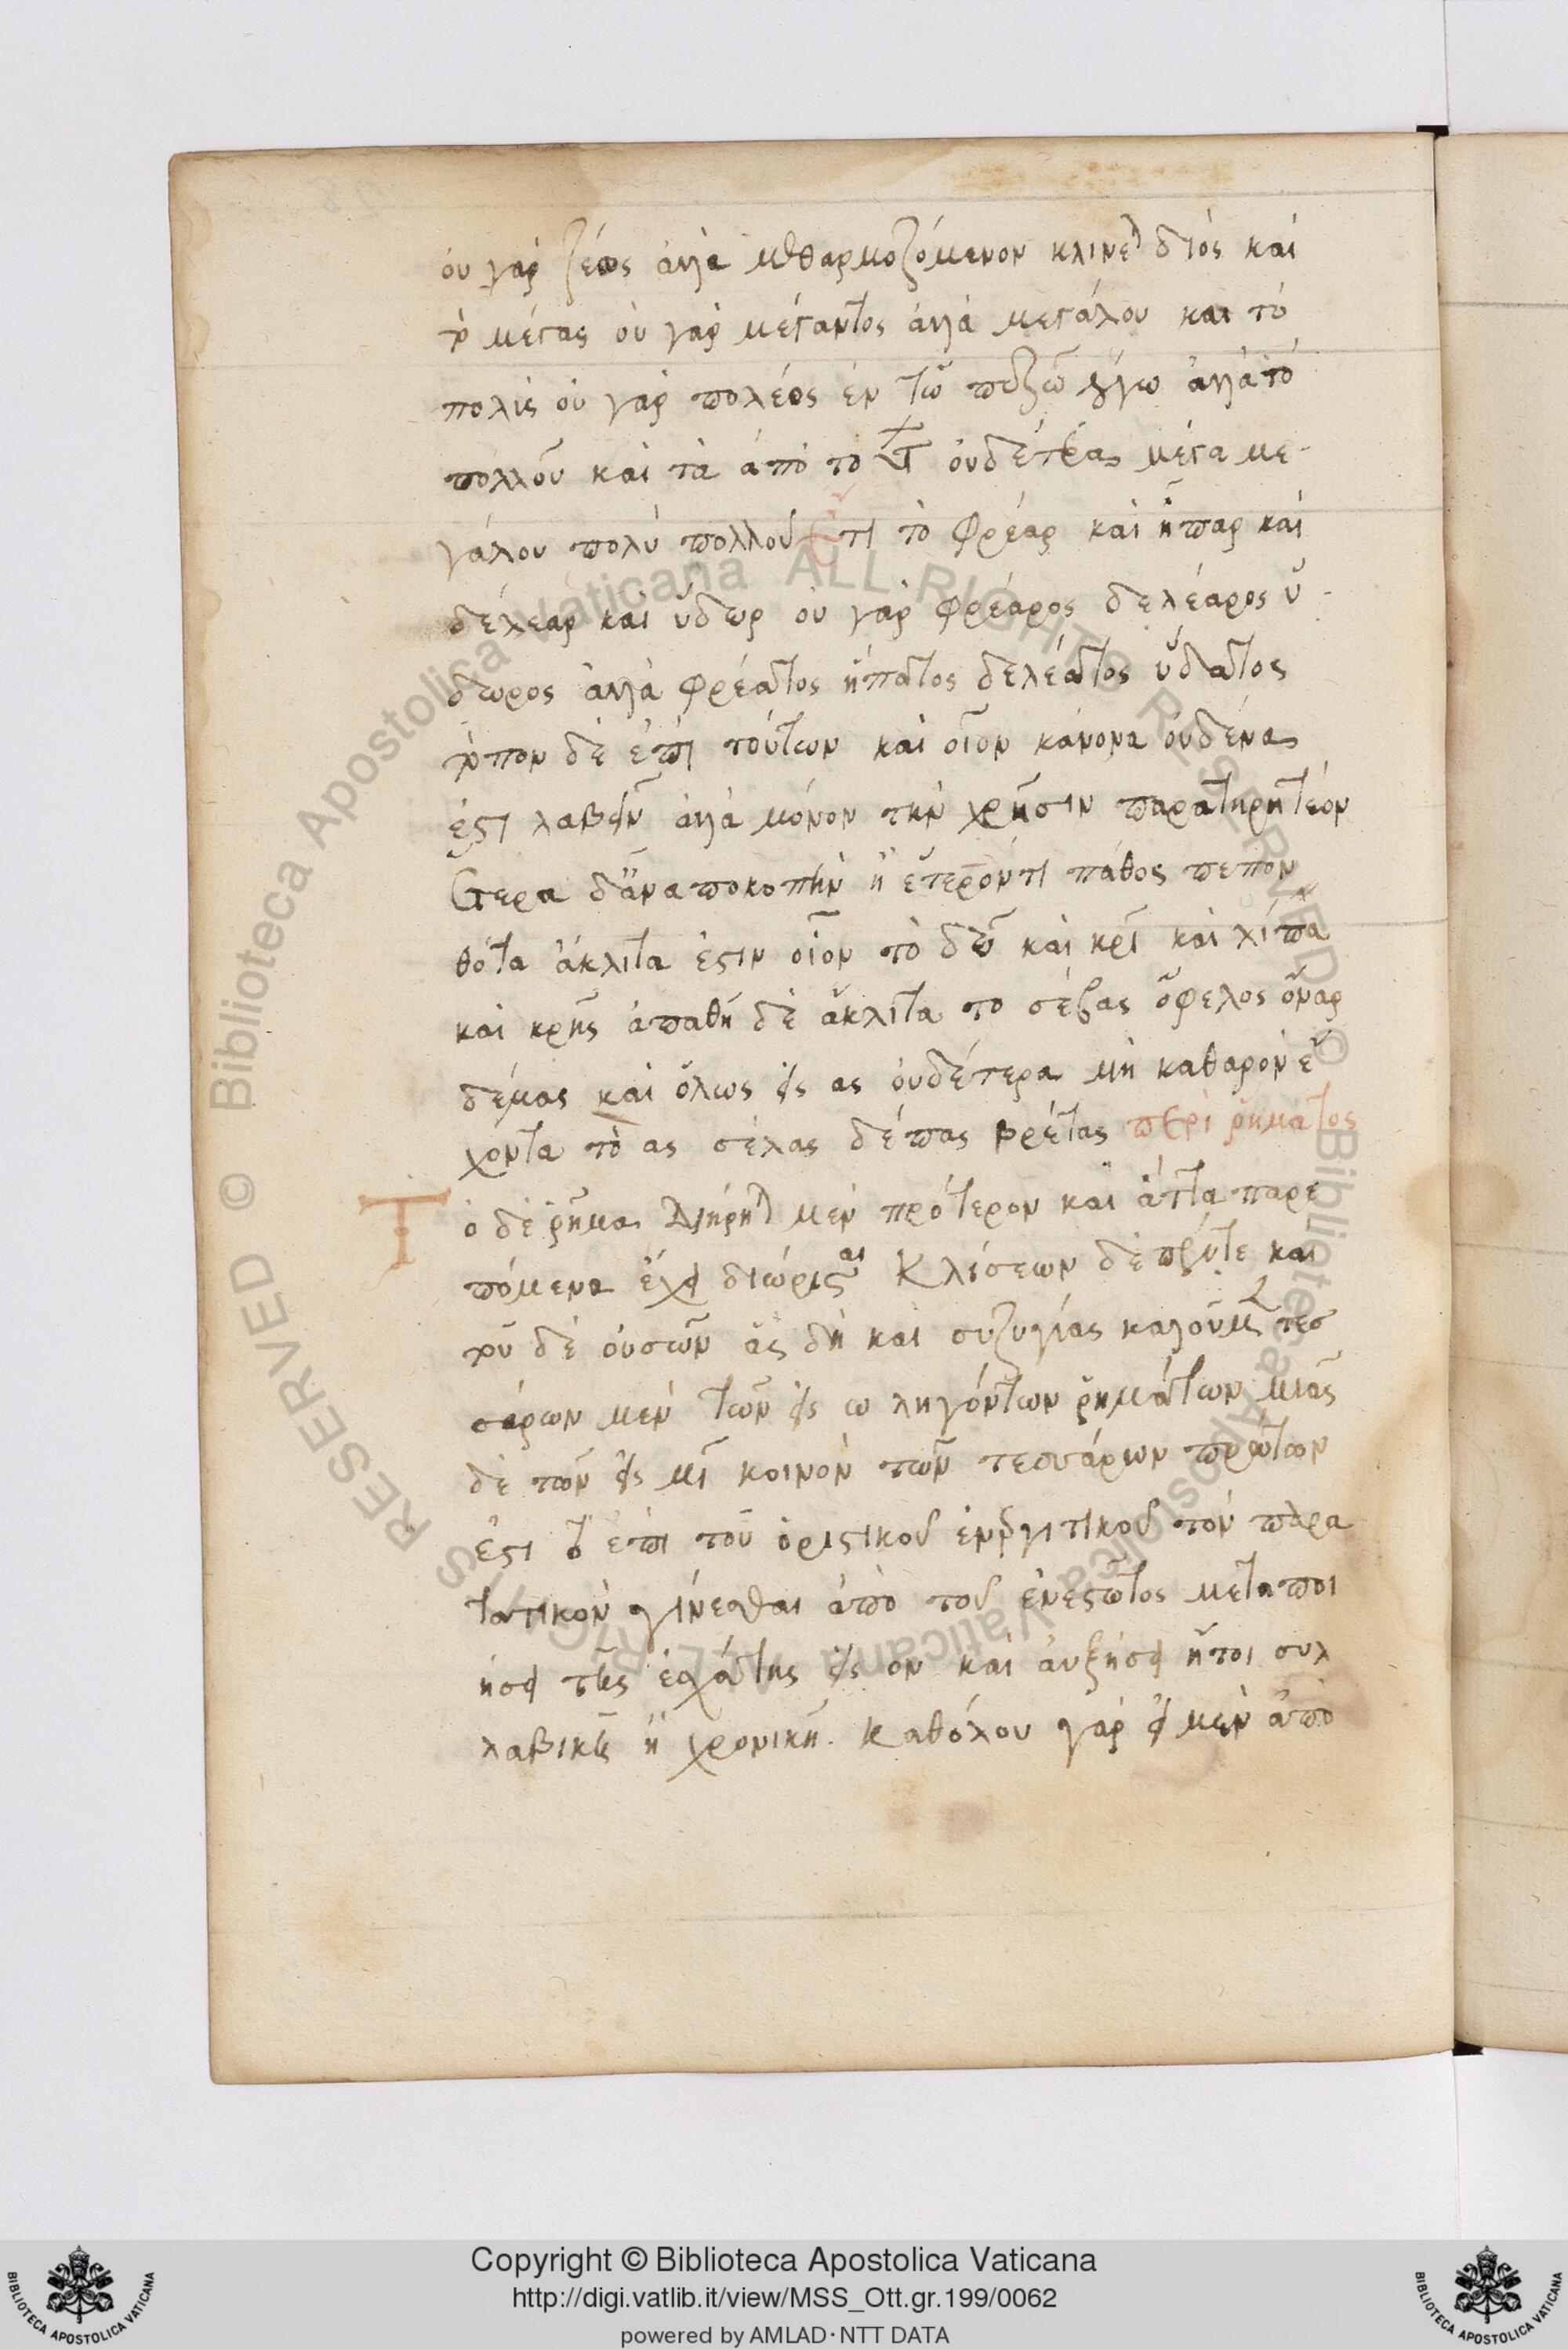 οὐ γὰρ ζέως ἀλλὰ μεθαρμοζόμενον κλίνεται διὸς καὶ
τὸ μέγας οὐ γὰρ μέγαντος ἀλλὰ μεγάλου καὶ τὸ
πολὺς οὐ γὰρ πολέος ἐν τῶ πεζῶ λόγω ἀλλὰ τὸ
πολλοῦ καὶ τὰ ἀπὸ τούτων οὐδέτερα μέγα με
γάλου πολὺ πολλοῦ Ἔτι τὸ φρέαρ καὶ ἧπαρ καὶ
δέλεαρ καὶ ὕδωρ οὐ γὰρ φρέαρος δελέαρος ὕ
δωρος ἀλλὰ φρέατος ἥπατος δελέατος ὕδατος
τρόπον δὲ ἐπὶ τούτων καὶ οἷον κανόνα οὐδένα
ἐστὶ λαβεῖν ἀλλὰ μόνον τὴν χρῆσιν παρατηρητέον
Ἕτερα δ' ἂν ἀποκοπὴν ἢ ἕτερόν τι πάθος πεπον
θότα ἄκλιτα ἐστιν οἷον τὸ δῶ καὶ κρῖ καὶ λίπα
καὶ κρῆς ἀπαθῆ δὲ ἄκλιτα τὸ σέβας ὄφελος ὄναρ
δέμας καὶ ὅλως εἰς ας οὐδέτερα μὴ καθαρὸν ἔ
χοντα τὸ ας σέλας δέπας βρέτας περὶ ῥήματος
Τὸ δὲ ῥῆμα διήρηται μὲν πρότερον καὶ ἅττα παρε
πόμενα ἔχει διώρισται Κλίσεων δὲ πέντε καὶ
τοῦ δὲ οὐσῶν ἃς δὴ καὶ συζυγίας καλοῦμεν τεσ
σάρων μὲν τῶν εἰς ω ληγόντων ῥημάτων μιᾶς
δὲ τῶν εἰς μι κοινὸν τῶν τεσσάρων πρῶτον
ἐστὶ τὸ ἐπὶ τοῦ ὁριστικοῦ ἐνεργητικοῦ τὸν παρα
τατικὸν γίνεσθαι ἀπὸ τοῦ ἐνεστῶτος μεταποι
ήσει τῆς ἐσχάτης εἰς ον καὶ αὐξήσει ἤτοι συλ
λαβικῆ ἢ χρονικῆ. Καθόλου γὰρ εἰ μὲν ἀπὸ
Copyright © Biblioteca Apostolica Vaticana
http://digi.vatlib.it/view/MSS_Ott.gr.199/0062
powered by AMLAD·NTT DATA